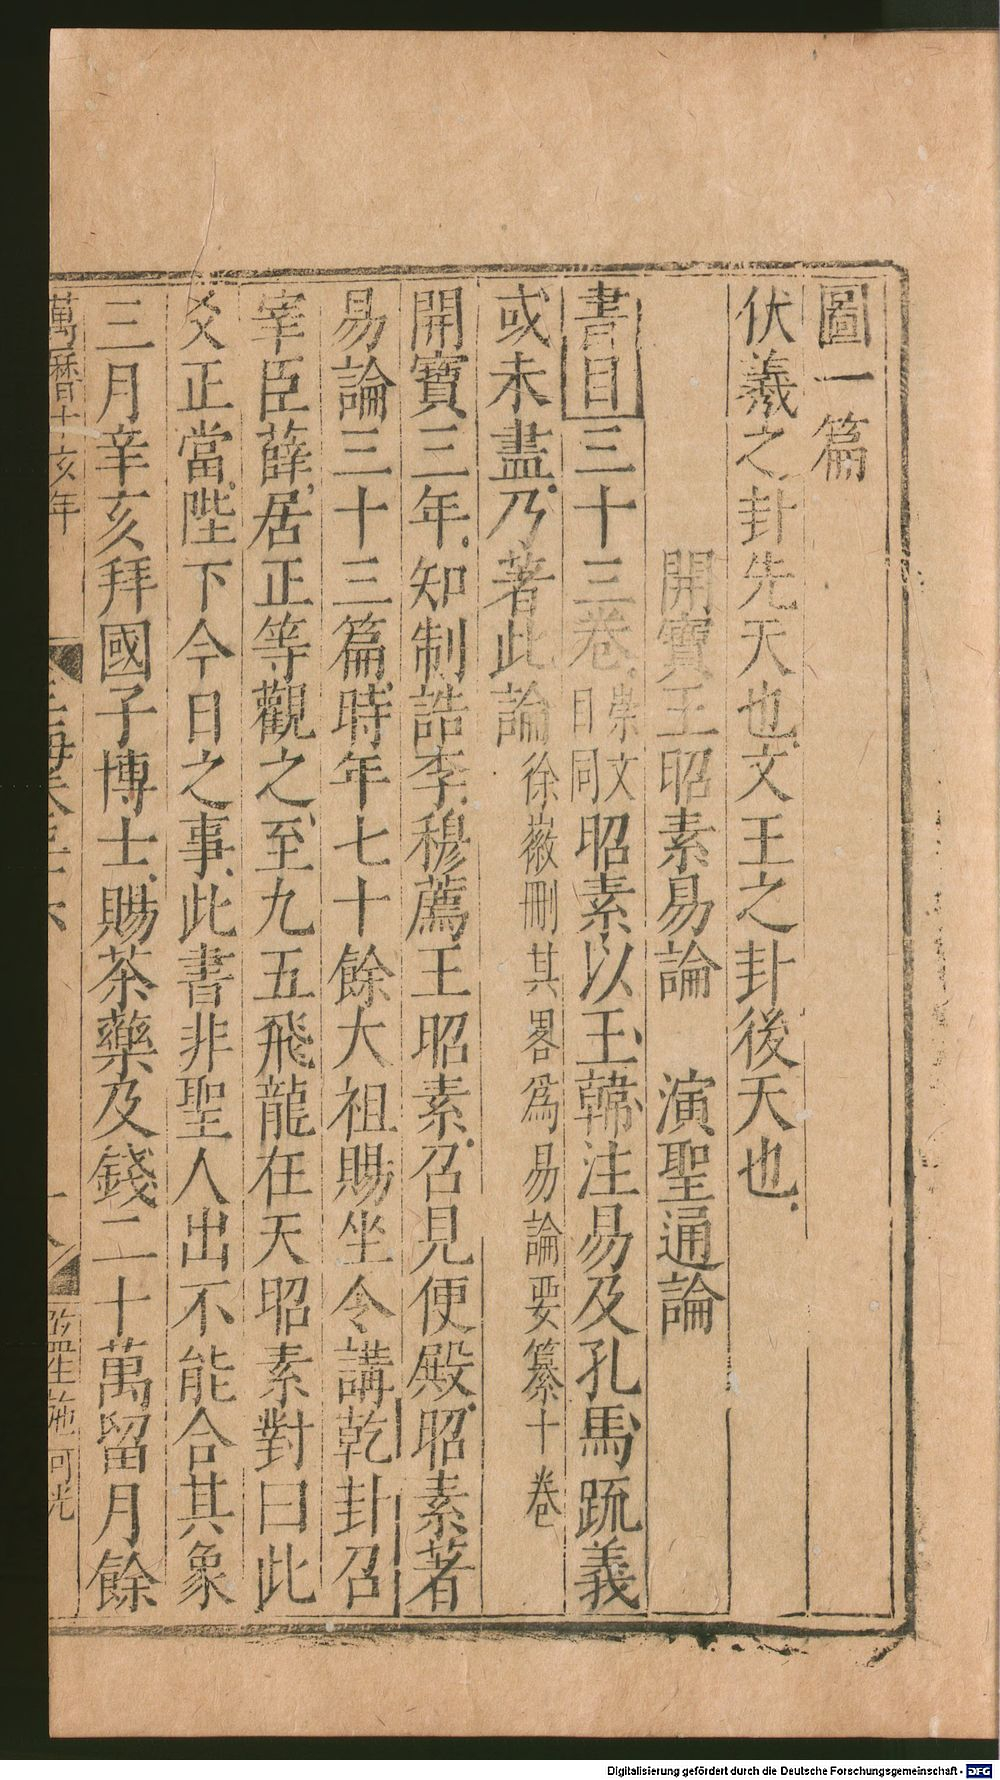 圖一篇
伏羲之卦先天也文王之卦後天也
開寶王昭素易論　演聖通論
書目三十三卷崇文目同昭素以王韓注易及孔馬疏義
或未盡乃著此論徐徽刪其畧爲易論要纂十卷
開寶三年知制誥李穆薦王昭素召見便殿昭素著
易論三十三篇時年七十餘大祖賜坐令講乾卦召
宰臣薛居正等觀之至九五飛龍在天昭素對曰此
爻正當陛下今日之事此書非聖人出不能合其象
三月辛亥拜國子博士賜茶藥及錢二十萬留月餘
萬曆十六年
監生施可光
Digitalisierung gefördert durch die Deutsche Forschungsgemeinschaft - DFG